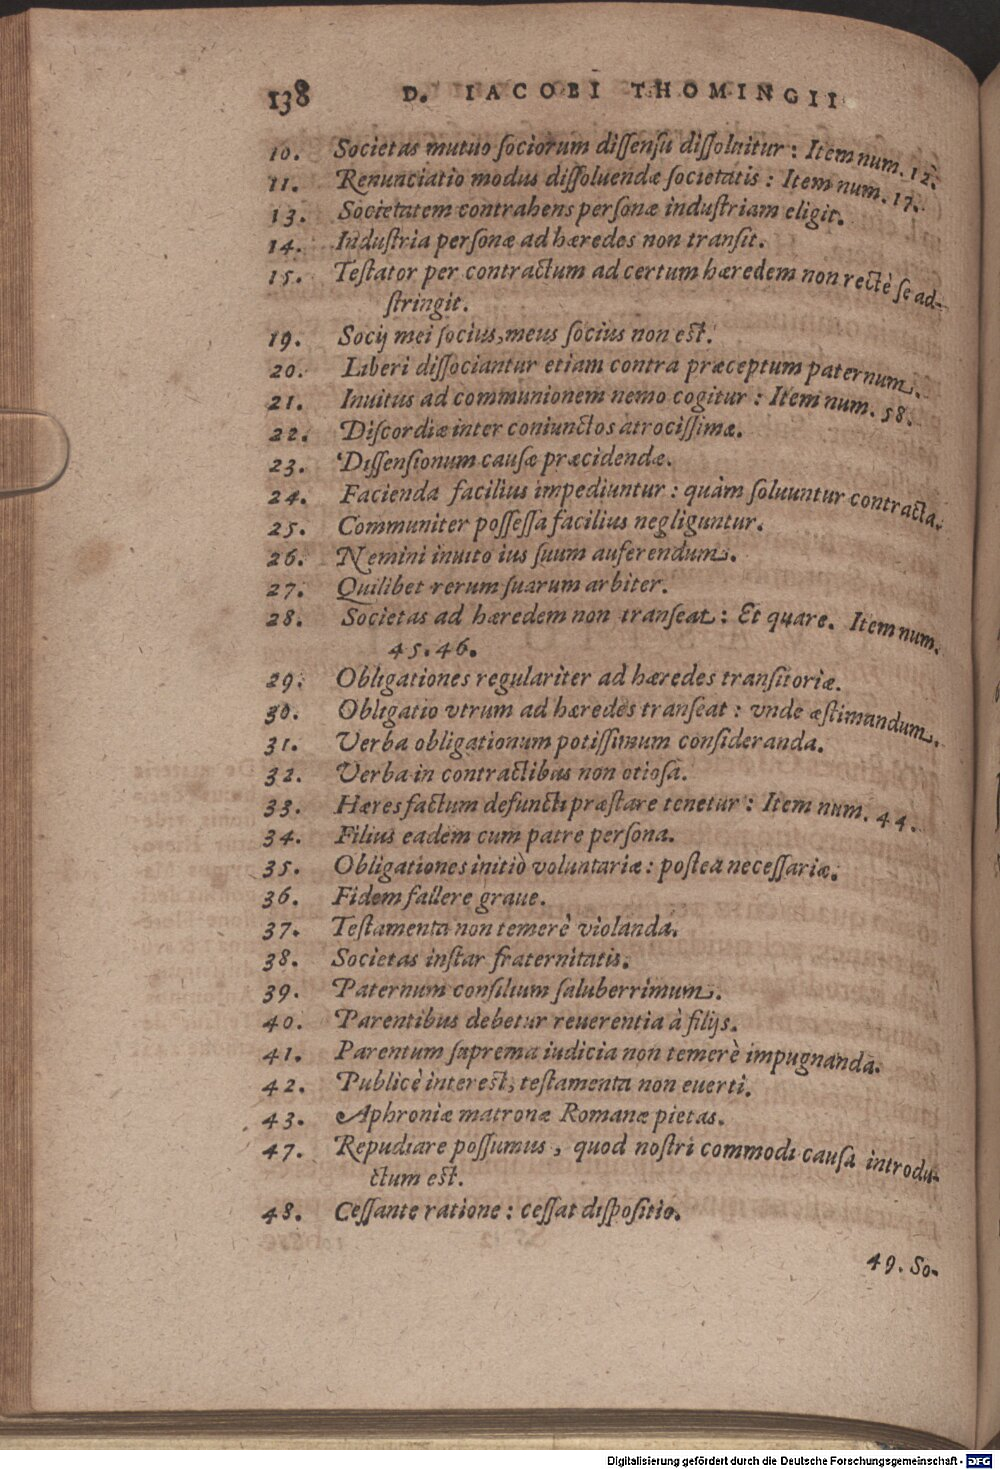 138 D. IACOBI THOMINGII
10. Societas mutuo sociorum dissensu dissoluitur : Item num. 12.
11. Renunciatio modus dissoluendæ societatis : Item num. 17.
13. Societatem contrahens personæ industriam eligit.
14. Industria personæ ad hæredes non transit.
15. Testator per contractum ad certum hæredem non rectè se ad-
stringit.
19. Socij mei socius, meus socius non est.
20. Liberi dissociantur etiam contra præceptum paternum.
21. Inuitus ad communionem nemo cogitur : Item num. 58.
22. Discordiæ inter coniunctos atrocissimæ.
23. Dissensionum causæ præcidendæ.
24. Facienda facilius impediuntur : quàm soluuntur contracta.
25. Communiter possessa facilius negliguntur.
26. Nemini inuito ius suum auferendum.
27. Quilibet rerum suarum arbiter.
28. Societas ad hæredem non transeat : Et quare. Item num.
45. 46.
29. Obligationes regulariter ad hæredes transitoriæ.
30. Obligatio vtrum ad hæredes transeat : vnde æstimandum.
31. Verba obligationum potissimum consideranda.
32. Verba in contractibus non otiosa.
33. Hæres factum defuncti præstare tenetur : Item num. 44.
34. Filius eadem cum patre persona.
35. Obligationes initiò voluntariæ : postea necessariæ.
36. Fidem fallere graue.
37. Testamenta non temerè violanda.
38. Societas instar fraternitatis.
39. Paternum consilium saluberrimum.
40. Parentibus debetur reuerentia à filijs.
41. Parentum suprema iudicia non temerè impugnanda.
42. Publicè interest, testamenta non euerti.
43. Aphroniæ matronæ Romanæ pietas.
47. Repudiare possumus, quod nostri commodi causa introdu-
ctum est.
48. Cessante ratione : cessat dispositio.
49. So-
Digitalisierung gefördert durch die Deutsche Forschungsgemeinschaft - DFG